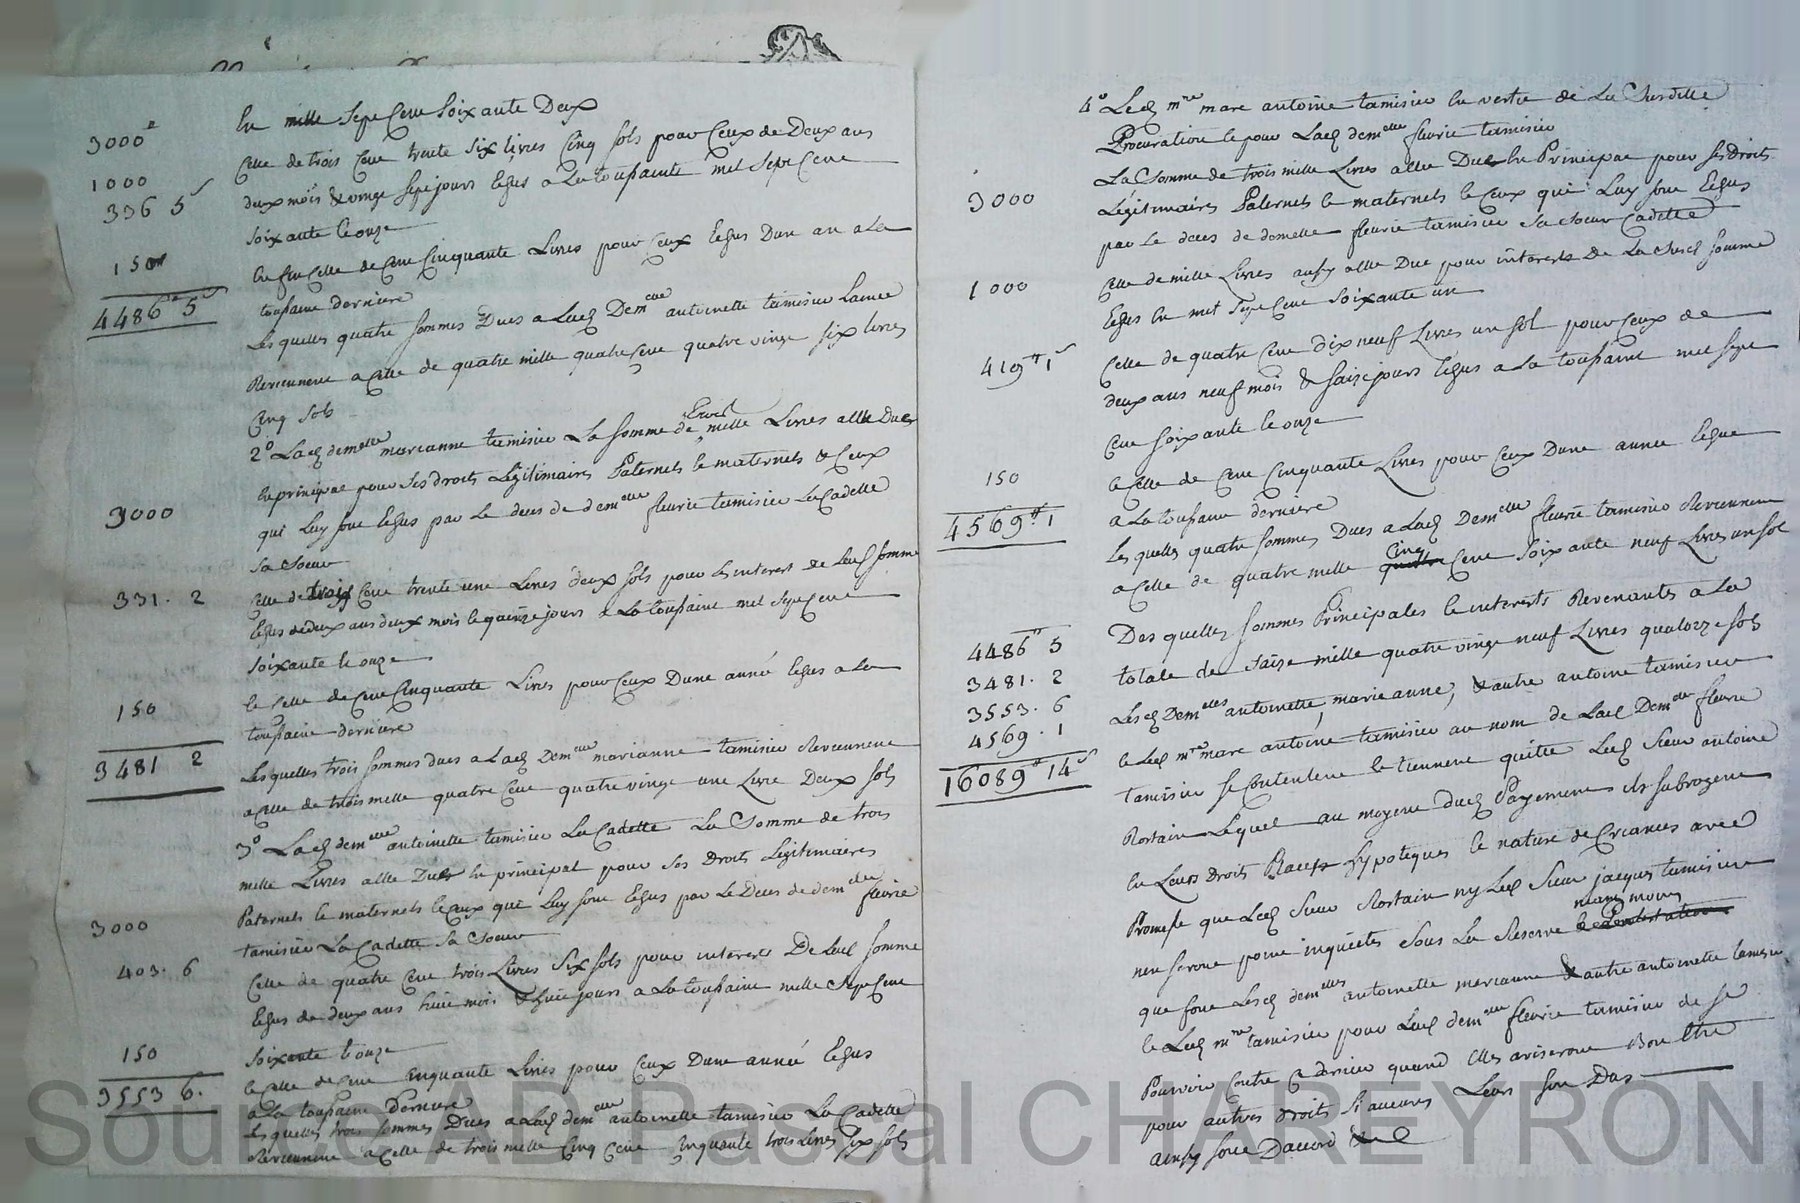 En mille Sept Cent Soixante Deux
3000#
Celle de trois Cent trente Six livres Cinq Sols pour Ceux de Deux ans
1000
deux mois & vingt Sept jours Echus a La toussainte mil Sept Cent
336 5ˢ
Soixante et onze
150
En fin Celle de Cent Cinquante Livres pour Ceux Echus Dun an a La
toussaint derniere
4486# 5ˢ
Les quelles quatre Sommes Dues a Lad Demelle antoinette tamisier Lainee
Reviennent a Celle de quatre mille quatre Cent quatre vingt Six livres
Cinq Sols
2° Lad demelle marianne tamisier La Somme de trois mille Livres a Elle Dues
En principal pour Ses droits Légitimaires Paternels et maternels & Ceux
3000
qui Luy Sont Echus par Le deces de demelle fleurie tamisier La Cadette
Sa Soeur
331. 2
Celle de trois Cent trente une Livres deux Sols pour les interest de Lad Somme
Echus de deux ans deux mois et quinze jours a La toussaint mil Sept Cent
Soixante et onze
150
et Celle de Cent Cinquante Livres pour Ceux Dune année Echus a La
toussaint derniere
3481 2
Les quelles trois Sommes dues a Lad Demelle marianne tamisier Reviennent
a Celle de trois mille quatre Cent quatre vingt une Livre Deux Sols
3° Lad demelle antoinette tamisier La Cadette La Somme de trois
mille Livres a Elle Dues En principal pour Ses Droits Légitimaires
3000
Paternels et maternels et Ceux qui Luy Sont Echus par Le Deces de demelle fleurie
tamisier La Cadette Sa Soeur
403. 6
Celle de quatre Cent trois Livres Six Sols pour interest De Lad Somme
Echus de deux ans huit mois & huit jours a La toussaint mille Sept Cent
Soixante et onze
150
et Celle de Cent Cinquante Livres pour Ceux Dune année Echus
a La toussaint Derniere
3553 6.
Les quelles trois Sommes Dues a Lad demelle antoinette tamisier La Cadette
Reviennent a Celle de trois mille Cinq Cent Cinquante trois Livres Six Sols
4° Led mre marc antoine tamisier En vertu de La Susditte
Procuration et pour Lad demelle fleurie tamisier
La Somme de trois mille Livres a Elle Due En Principal pour Ses Droits
3000
Légitimaires Paternels et maternels et Ceux qui Luy Sont Echus
par Le deces de demelle fleurie tamisier Sa Soeur Cadette
1000
Celle de mille Livres aussy a Elle Due pour interests De La Susd Somme
Echus En mil Sept Cent Soixante un
419# 1ˢ
Celle de quatre Cent dix neuf Livres un Sol pour Ceux de
deux ans neuf mois & Saize jours Echus a La toussaint mil Sept
Cent Soixante et onze
150
et Celle de Cent Cinquante Livres pour Ceux Dune année Echue
a La toussaint derniere
4569# 1
Les quelles quatre Sommes Dues a Lad Demelle fleurie tamisier Reviennent
a Celle de quatre mille quatre Cinq Cent Soixante neuf Livres un Sol
4486# 5
Des quelles Sommes Principales et interests Revenants a La
3481. 2
totale de Saize mille quatre vingt neuf Livres quatorze Sols
3553. 6
Lesd Demelles antoinette, marie anne, & autre antoinette tamisier
4569. 1
et Led mre marc antoine tamisier au nom de Lad Demelle fleurie
16089# 14ˢ
tamisier Se Contentent et tiennent quitte Led Sieur antoine
Rostain Lequel au moyent dud Payement ils Subrogent
En Leurs Droits Places hypoteques et nature de Creances avec
Promesse que Led Sieur Rostain ny Led Sieur jacques tamisier
nen Seront point inquietés Sous La Reserve
que font Lesd demelles antoinette marianne & autre antoinette tamisier
et Led mre tamisier pour Lad demelle fleurie tamisier de Se
Pourvoir Contre Ce dernier quand Elles aviseront Bon Etre
pour autres Droits Si aucuns Leurs Son Dus
ainsy Sont Daccord
Source AD Pascal CHAREYRON